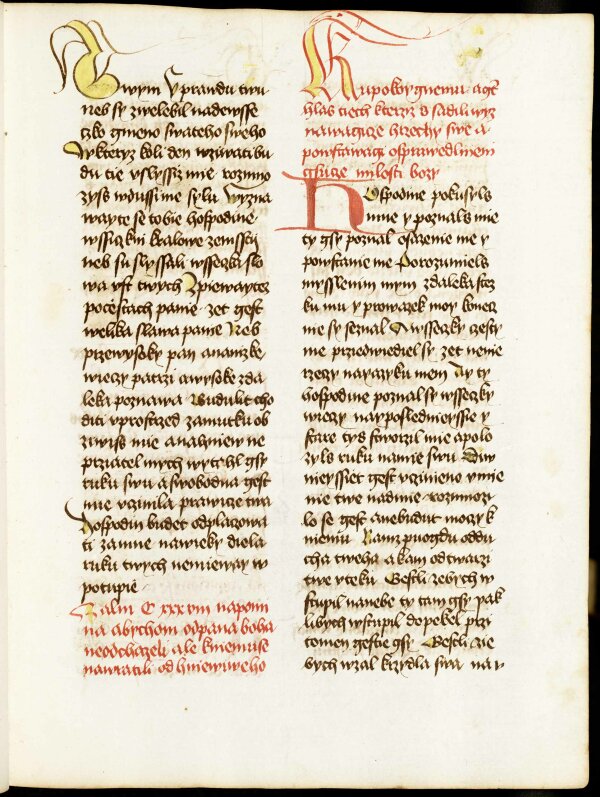 twym Yprawdu twu
neb sy zwelebil nadewsse
czko gmeno swateho sweho
Wkteryz koli den wziwati bu
du tie vslyssiz mie rozmno
zyss wdussi me sylu Wyzna
wayte se tobie hospodine
wssiczkni kralowe zemsstij
neb su slyssali wssecka slo
wa vst twych Zpiewaytez
pocestach panie zet gest
welika slawa panie Neb
przewysoky pan ananizke
wieczy patrzi awysoke zda
leka poznawa Budulit cho
diti vprostrzed zamutku ob
zywiss mie anahniew ne
przatel mych wytrhl gsy
ruku swu aswobodna gest
mie vczinila prawicze twa
hospodin budet odplaczowa
ti zamne nawieky diela
ruku twych nemieway w
potupie
Zalm C xxxviii napomi
na abychom odpana boha
neodchazeli ale kniemu se
nawratili od hniewu geho
Kupokoygnemu agt
hlas tiech kterzi odsudili wyz
nawagicze hrziechy swe a
powstawagi osprawedlneni
gsucze milosti bozy
Hospodine pokusyls
mne y poznals mie
ty gsy poznal osazenie me y
powstanie me Porozumiels
myssleniem mym zdaleka stez
ku mu y prowazek moy konecz
nie sy seznal A wssiczky czesty
me przedwiediel sy zet nenie
rzeczy nayazyku mem Ay ty
hospodine poznal sy wssecky
wieczy nayposlednieyssie y
stare tys stworzil mie apolo
zyls ruku namie swu Diw
nieyssiet gest vczinieno vmie
nie twe nademne rozmnozi
lo se gest anebudut moczy k
niemu Kamz puogdu oddu
cha tweho akam odtwarzi
twe vteku Gestli zebych w
stupil nanebe ty tam gsy pak
libych wstupil dopekel przi
tomen gestie gsy Gestli zie
bych wzal krzydla swa nay